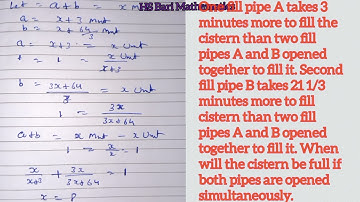 Let = a+b = x Mnt
HS Bari Mathematics
a = x+3 Mnt
b = x + 64/3 Mnt
a = x+3 = x Unt
1 = x Unt / x+3
b = 3x+64 / 3 = x Unt
1 = 3x / 3x+64
a+b = x Mnt - x Unt
1 = x/x = 1
x/x+3 + 3x/3x+64 = 1
x = 8
fill pipe A takes 3
minutes more to fill the
cistern than two fill
pipes A and B opened
together to fill it. Second
fill pipe B takes 21 1/3
minutes more to fill
cistern than two fill
pipes A and B opened
together to fill it. When
will the cistern be full if
both pipes are opened
simultaneously.